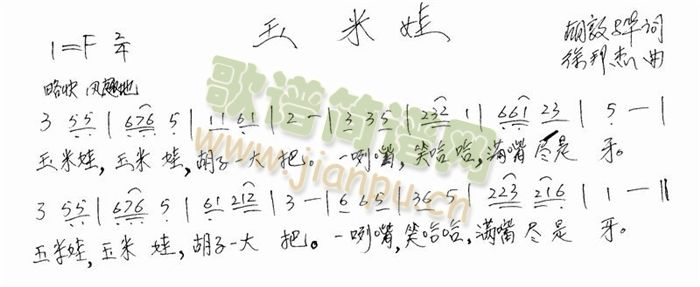 玉米娃
1=F 2/4
胡敦骅词
徐邦杰曲
略快 风趣地
3 55 | 676 5 | 11 61 | 2 — | 3 35 | 232 1 | 661 23 | 5 — |
玉米娃,玉米 娃,胡子一大 把。一咧嘴,笑哈哈,满嘴尽是 牙。
3 55 | 676 5 | 61 212 | 3 — | 6 65 | 36 5 | 223 216 | 1 — ||
玉米娃,玉米 娃,胡子一大 把。一咧嘴,笑哈哈,满嘴尽是 牙。
歌谱简谱网
www.jianpu.cn